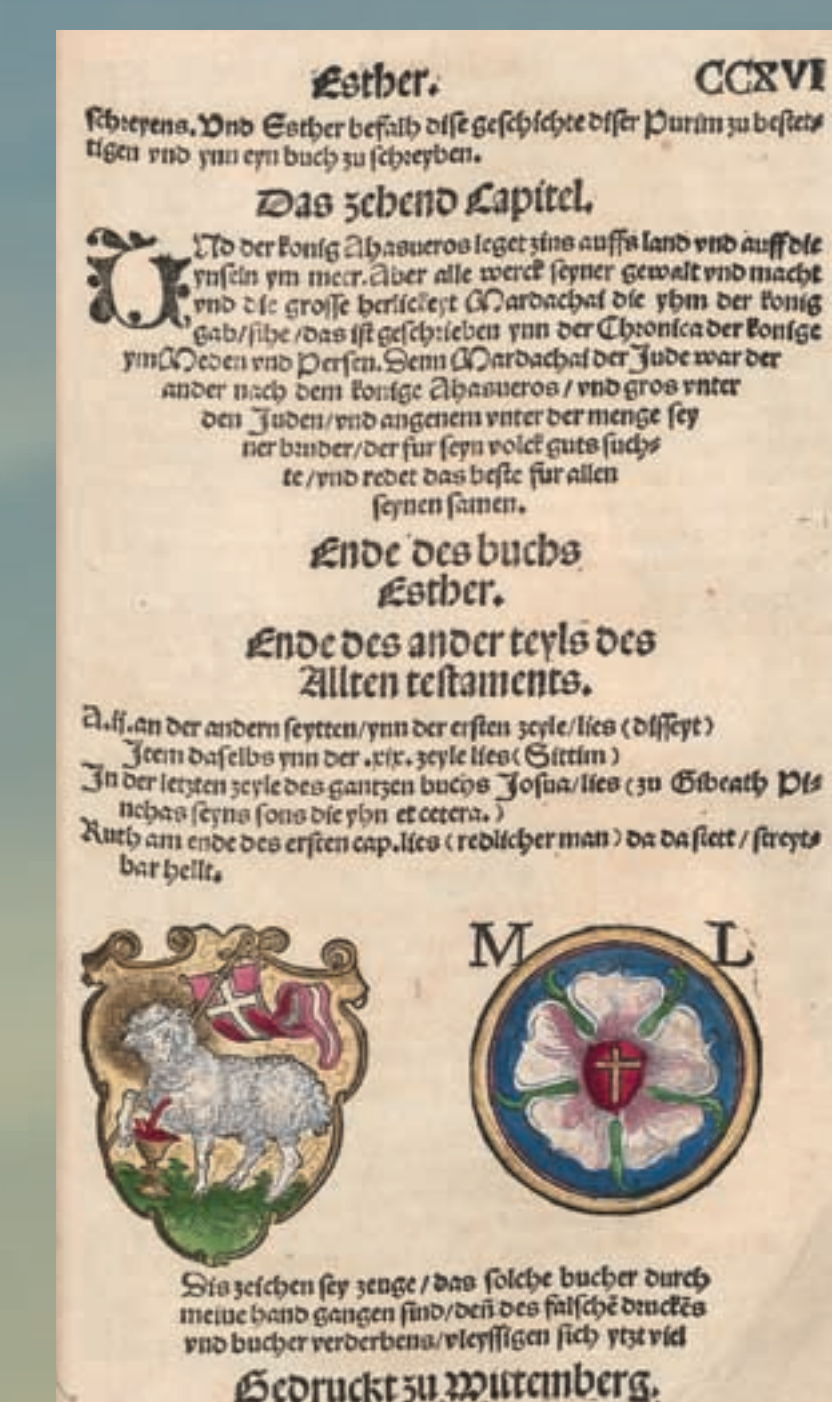 Esther. CCXVI
schreyens. Vnd Esther befalh dise geschichte diser Purim zu bestet⸗
tigen vnd ynn eyn buch zu schreyben.
Das zehend Capitel.
VNd der konig Ahasueros leget zins auffs land vnd auff die
ynseln ym meer. Aber alle werck seyner gewalt vnd macht
vnd die grosse herlickeyt Mardachai die yhm der konig
gab/sihe/das ist geschrieben ynn der Chronica der konige
ym Meden vnd Persen. Denn Mardachai der Jude war der
ander nach dem konige Ahasueros/vnd gros vnter
den Juden/vnd angenem vnter der menge sey
ner bruder/der fur seyn volck guts such⸗
te/vnd redet das beste fur allen
seynen samen.
Ende des buchs
Esther.
Ende des ander teyls des
Allten testaments.
A.ij.an der andern seytten/ynn der ersten zeyle/lies (disseyt)
Item daselbs ynn der .xix. zeyle lies (Sittim)
In der letzten zeyle des gantzen buchs Josua/lies (zu Gibeath Pi⸗
nehas seyns sons die yhn et cetera.)
Ruth am ende des ersten cap.lies (redlicher man) da da stett/streyt⸗
bar hellt.
M L
Dis zeichen sey zeuge/das solche bucher durch
meine hand gangen sind/deñ des falschē druckēs
vnd bucher verderbens/vleyssigen sich ytzt viel
Gedruckt zu Wittemberg.